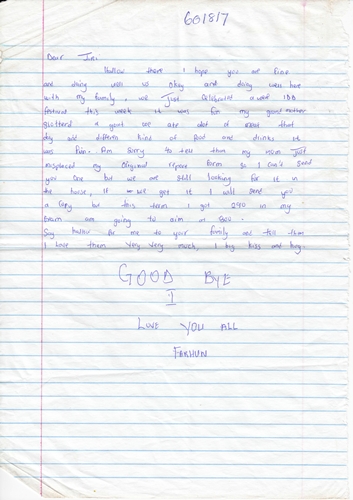 601817
Dear Jiri
Hallow there I hope you are fine
and doing well so okay and doing well here
with my family, we Just Celebrated a
festival this week it was fun my grand mother
a goat we ate alot of meat that
day and different kind of food and drinks it
was fun. Am sorry to tell that my mum Just
misplaced my Original report form so I can't send
you one but we are still looking for it in
the house, if we get it I will send you
a copy but this term I got 290 in my
exam am going to aim at 300.
Say hallow for me to your family and tell them
I love them very very much, I big kiss and hug.
GOOD BYE
I
LOVE YOU ALL